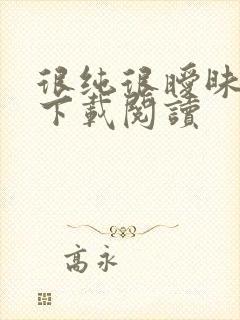 很纯很暧昧
下載閱讀
高永